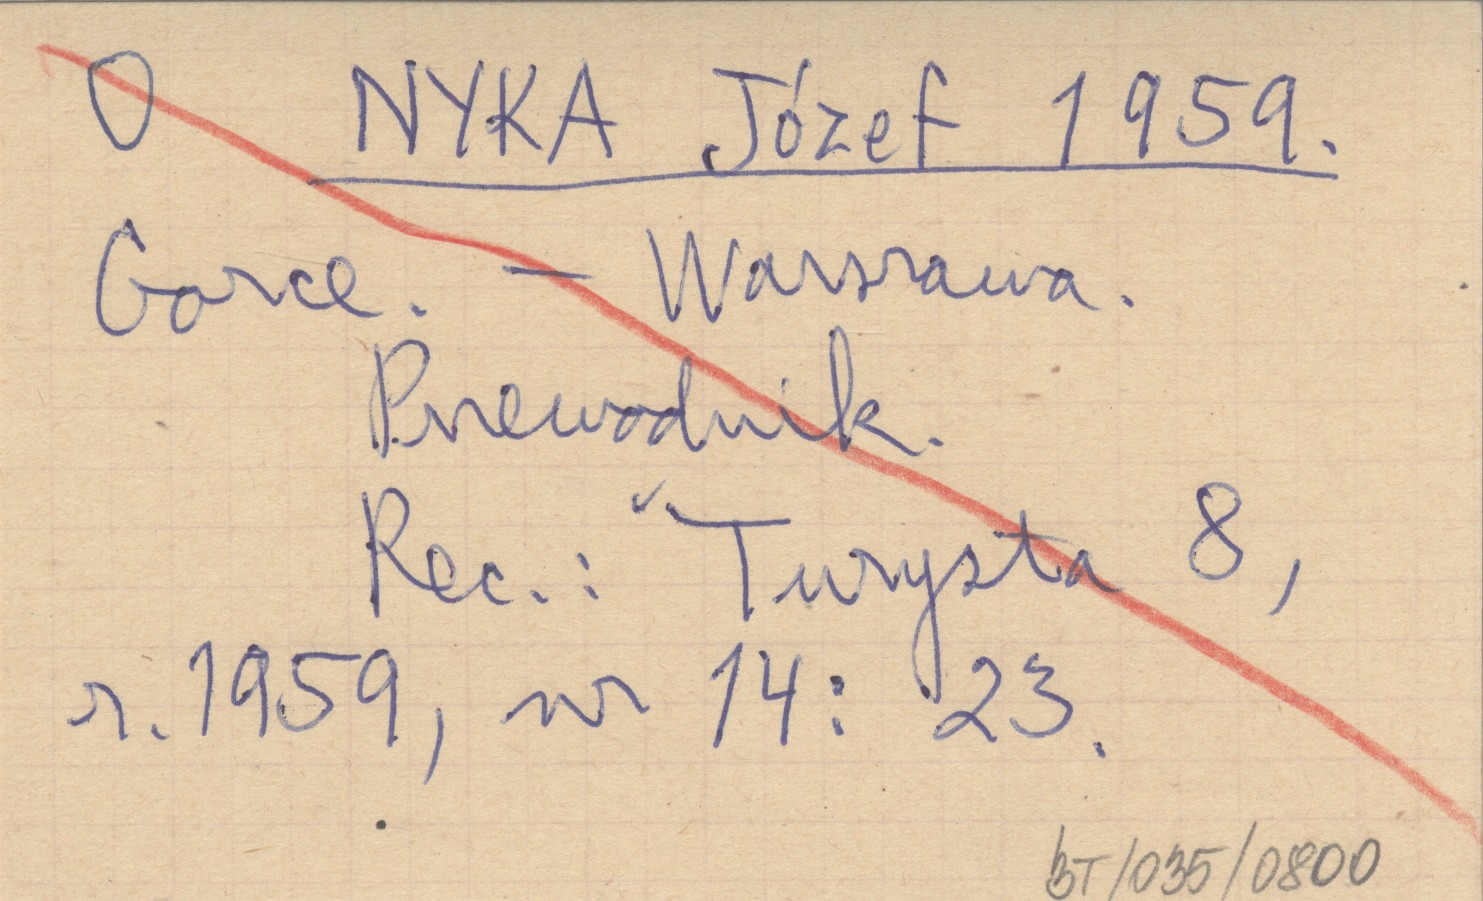 O NYKA Józef 1959.
Gorce. – Warszawa.
Przewodnik.
Rec.: Turysta 8,
r. 1959, nr 14: 23.
BT/035/0800